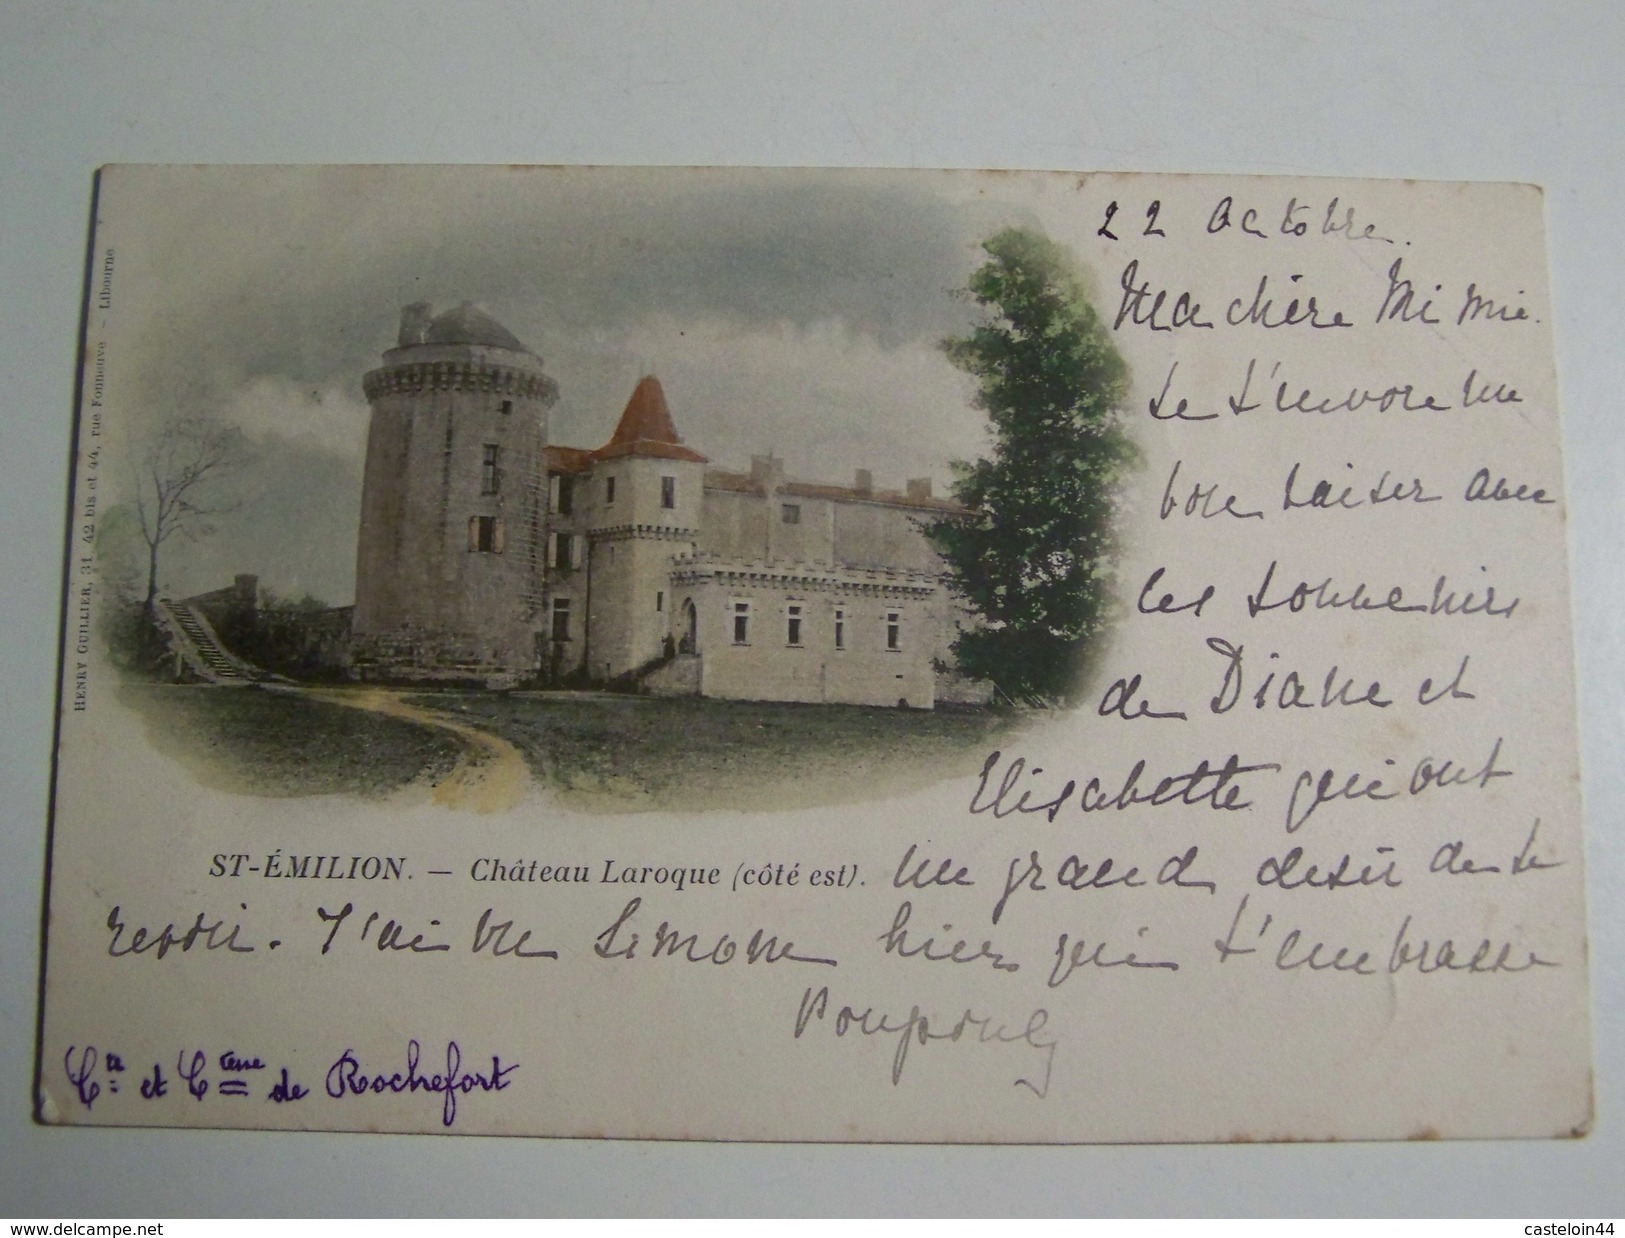 22 Octobre.
Ma chère Mimie.
Je t'envoie un
bon baiser avec
les souvenirs
de Diane et
Elisabette qui ont
ST-ÉMILION. — Château Laroque (côté est). un grand desir de te
revoir. J'ai vu Simone hier qui t'embrasse
Cte et Ctesse de Rochefort
HENRY GUILLIER, 31, 42 bis et 44, rue Fonneuve — Libourne
https://www.delcampe.net
casteloin44